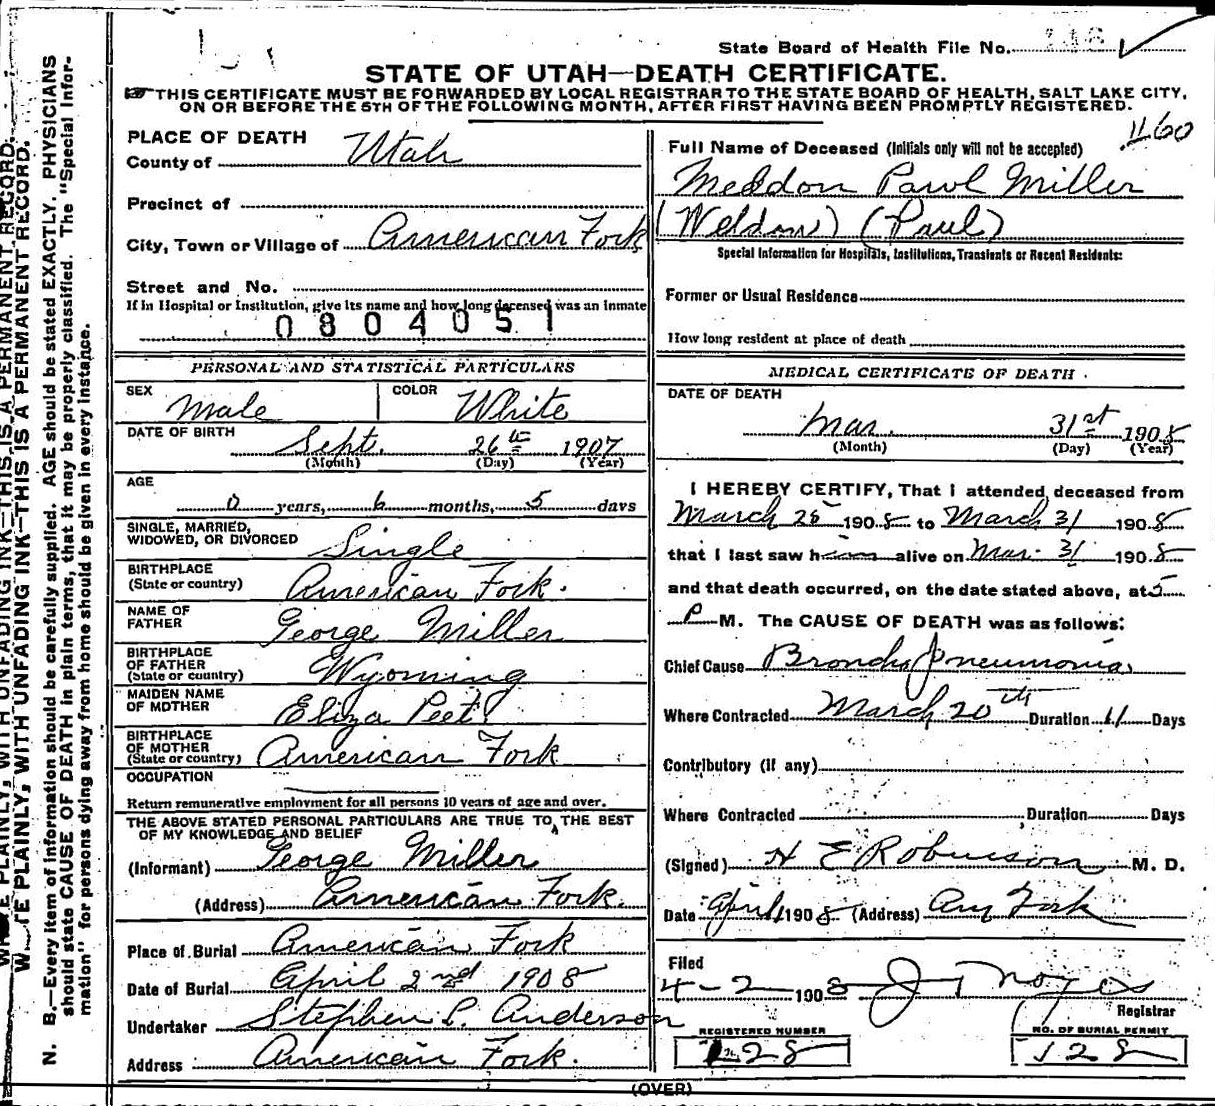 State Board of Health File No. 118
STATE OF UTAH—DEATH CERTIFICATE.
THIS CERTIFICATE MUST BE FORWARDED BY LOCAL REGISTRAR TO THE STATE BOARD OF HEALTH, SALT LAKE CITY,
ON OR BEFORE THE 5TH OF THE FOLLOWING MONTH, AFTER FIRST HAVING BEEN PROMPTLY REGISTERED.
PLACE OF DEATH
County of Utah
Precinct of
City, Town or Village of American Fork
Street and No.
If in Hospital or Institution, give its name and how long deceased was an inmate
0804051
1160
Full Name of Deceased (Initials only will not be accepted)
Meldon Pawl Miller
(Weldon) (Paul)
Special Information for Hospitals, Institutions, Transients or Recent Residents:
Former or Usual Residence
How long resident at place of death
PERSONAL AND STATISTICAL PARTICULARS
SEX Male COLOR White
DATE OF BIRTH Sept. 26th 1907
(Month) (Day) (Year)
AGE
0 years, 6 months, 5 days
SINGLE, MARRIED,
WIDOWED, OR DIVORCED Single
BIRTHPLACE
(State or country) American Fork.
NAME OF
FATHER George Miller
BIRTHPLACE
OF FATHER
(State or country) Wyoming
MAIDEN NAME
OF MOTHER Eliza Peet
BIRTHPLACE
OF MOTHER
(State or country) American Fork
OCCUPATION
Return remunerative employment for all persons 10 years of age and over.
THE ABOVE STATED PERSONAL PARTICULARS ARE TRUE TO THE BEST
OF MY KNOWLEDGE AND BELIEF
(Informant) George Miller
(Address) American Fork.
Place of Burial American Fork
Date of Burial April 2nd 1908
Undertaker Stephen L. Anderson
Address American Fork.
MEDICAL CERTIFICATE OF DEATH
DATE OF DEATH
Mar. 31st 1908
(Month) (Day) (Year)
I HEREBY CERTIFY, That I attended deceased from
March 28 1908 to March 31 1908
that I last saw him alive on Mar. 31 1908
and that death occurred, on the date stated above, at 5
P M. The CAUSE OF DEATH was as follows:
Chief Cause Broncho Pneumonia
Where Contracted March 20th Duration 11 Days
Contributory (if any)
Where Contracted Duration Days
(Signed) H E Robinson M. D.
Date April 1 1908 (Address) Am Fork
Filed
4-2 1908 J T Noyes
Registrar
REGISTERED NUMBER
128
NO. OF BURIAL PERMIT
128
(OVER)
WRITE PLAINLY, WITH UNFADING INK—THIS IS A PERMANENT RECORD.
WRITE PLAINLY, WITH UNFADING INK—THIS IS A PERMANENT RECORD.
N. B.—Every item of information should be carefully supplied. AGE should be stated EXACTLY. PHYSICIANS
should state CAUSE OF DEATH in plain terms, that it may be properly classified. The "Special Infor-
mation" for persons dying away from home should be given in every instance.